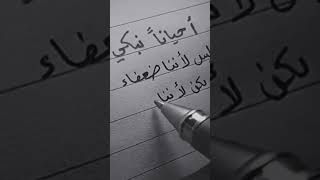 أحياناً نبكي
ليس لأننا ضعفاء
لكن لأننا